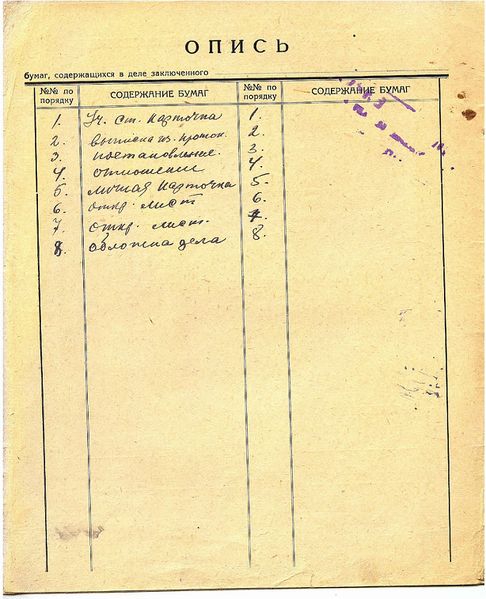 ОПИСЬ
бумаг, содержащихся в деле заключенного
№№ по порядку СОДЕРЖАНИЕ БУМАГ №№ по порядку СОДЕРЖАНИЕ БУМАГ
1. Уч. Ст. Карточка 1.
2. Выписка из проток. 2.
3. постановление. 3.
4. отношении 4.
5. личная карточка 5.
6. откр. лист 6.
7. откр. лист. 7.
8. обложка дела 8.